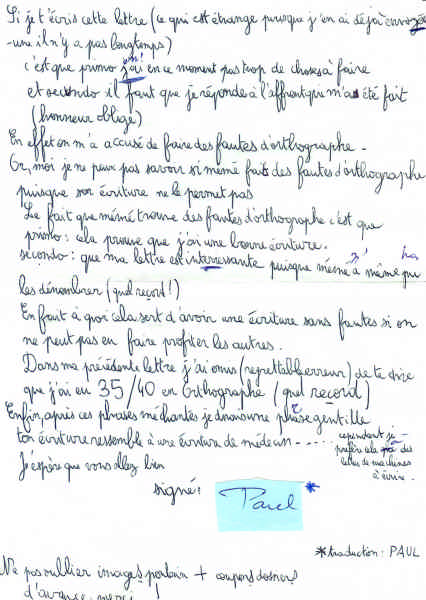 Si je t'écris cette lettre (ce qui est étrange puisque j'en ai déjà envoyée
- une il n'y a pas longtemps)
c'est que primo j'ai en ce moment pas trop de choses à faire
et secundo il faut que je réponde à l'affront que m'a été fait
(honneur oblige)
En effet on m'a accusé de faire des fautes d'orthographe.
Or, moi je ne peux pas savoir si mémé fait des fautes d'orthographe
puisque son écriture ne le permet pas
Le fait que mémé trouve des fautes d'orthographe c'est que
primo : cela prouve que j'ai une bonne écriture.
secondo : que ma lettre est interessante puisque mémé a même pu
les dénombrer (quel record!)
En fait à quoi cela sert d'avoir une écriture sans fautes si on
ne peut pas en faire profiter les autres.
Dans ma précédente lettre j'ai omis (regrettable erreur) de te dire
que j'ai eu 35/40 en Orthographe (quel record)
Enfin, après ces phrases méchantes je donne une phrase gentille
ton écriture ressemble à une écriture de médecin - - - -
cependant je
préfère cela que des
lettres de machines
à écrire.
J'espère que vous allez bien
signé :
Paul *
* traduction : PAUL
Ne pas oublier images + coupons
d'avance merci !